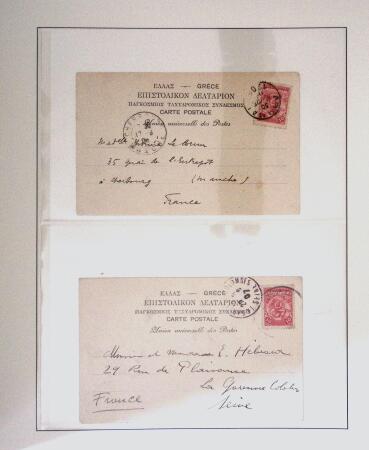 ΕΛΛΑΣ — GRÈCE
ΕΠΙΣΤΟΛΙΚΟΝ ΔΕΛΤΑΡΙΟΝ
ΠΑΓΚΟΣΜΙΟΣ ΤΑΧΥΔΡΟΜΙΚΟΣ ΣΥΝΔΕΣΜΟΣ
CARTE POSTALE
Union universelle des Postes
35 quai de l'Entrepot
à Cherbourg (Manche)
France
ΕΛΛΑΣ — GRÈCE
ΕΠΙΣΤΟΛΙΚΟΝ ΔΕΛΤΑΡΙΟΝ
ΠΑΓΚΟΣΜΙΟΣ ΤΑΧΥΔΡΟΜΙΚΟΣ ΣΥΝΔΕΣΜΟΣ
CARTE POSTALE
Union universelle des Postes
Monsieur et Madame E.
29 Rue de Plaisance
La Garenne Colombes
France Seine